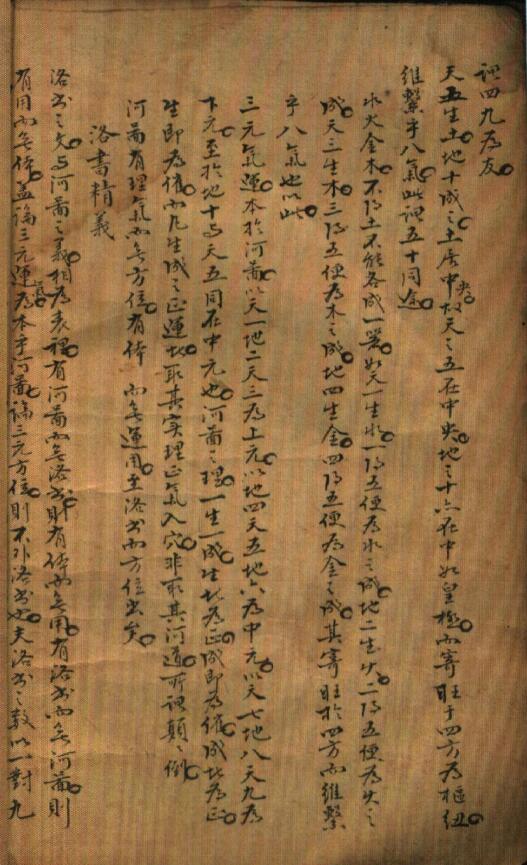 謂四九為友
天五生土地十成之土居中央故天之五在中央地之十亦在中如皇極而寄旺于四方為樞紐
維繫乎八氣此謂五十同途
水火金木不得土不能各成一器如天一生水一得五便為水之成地二生火二得五便為火之
成天三生木三得五便為木之成地四生金四得五便為金之成其寄旺於四方而維繫
乎八氣也以此
三元氣運本於河圖以天一地二天三為上元以地四天五地六為中元以天七地八天九為
下元至於地十與天五同在中元也河圖之理一生一成生者為正成即為催成者為正
生即為催而凡生成之正運者取其實理正氣入穴非取其河道所謂顛顛倒
河圖有理氣而無方位有体而無運用至洛書而方位出矣
洛書精義
洛書之文與河圖之義相為表裡有河圖而無洛書則有体而無用有洛書而無河圖則
有用而無体蓋論三元氣運為本乎河圖論三元方位則不外洛書也夫洛書之數以一對九